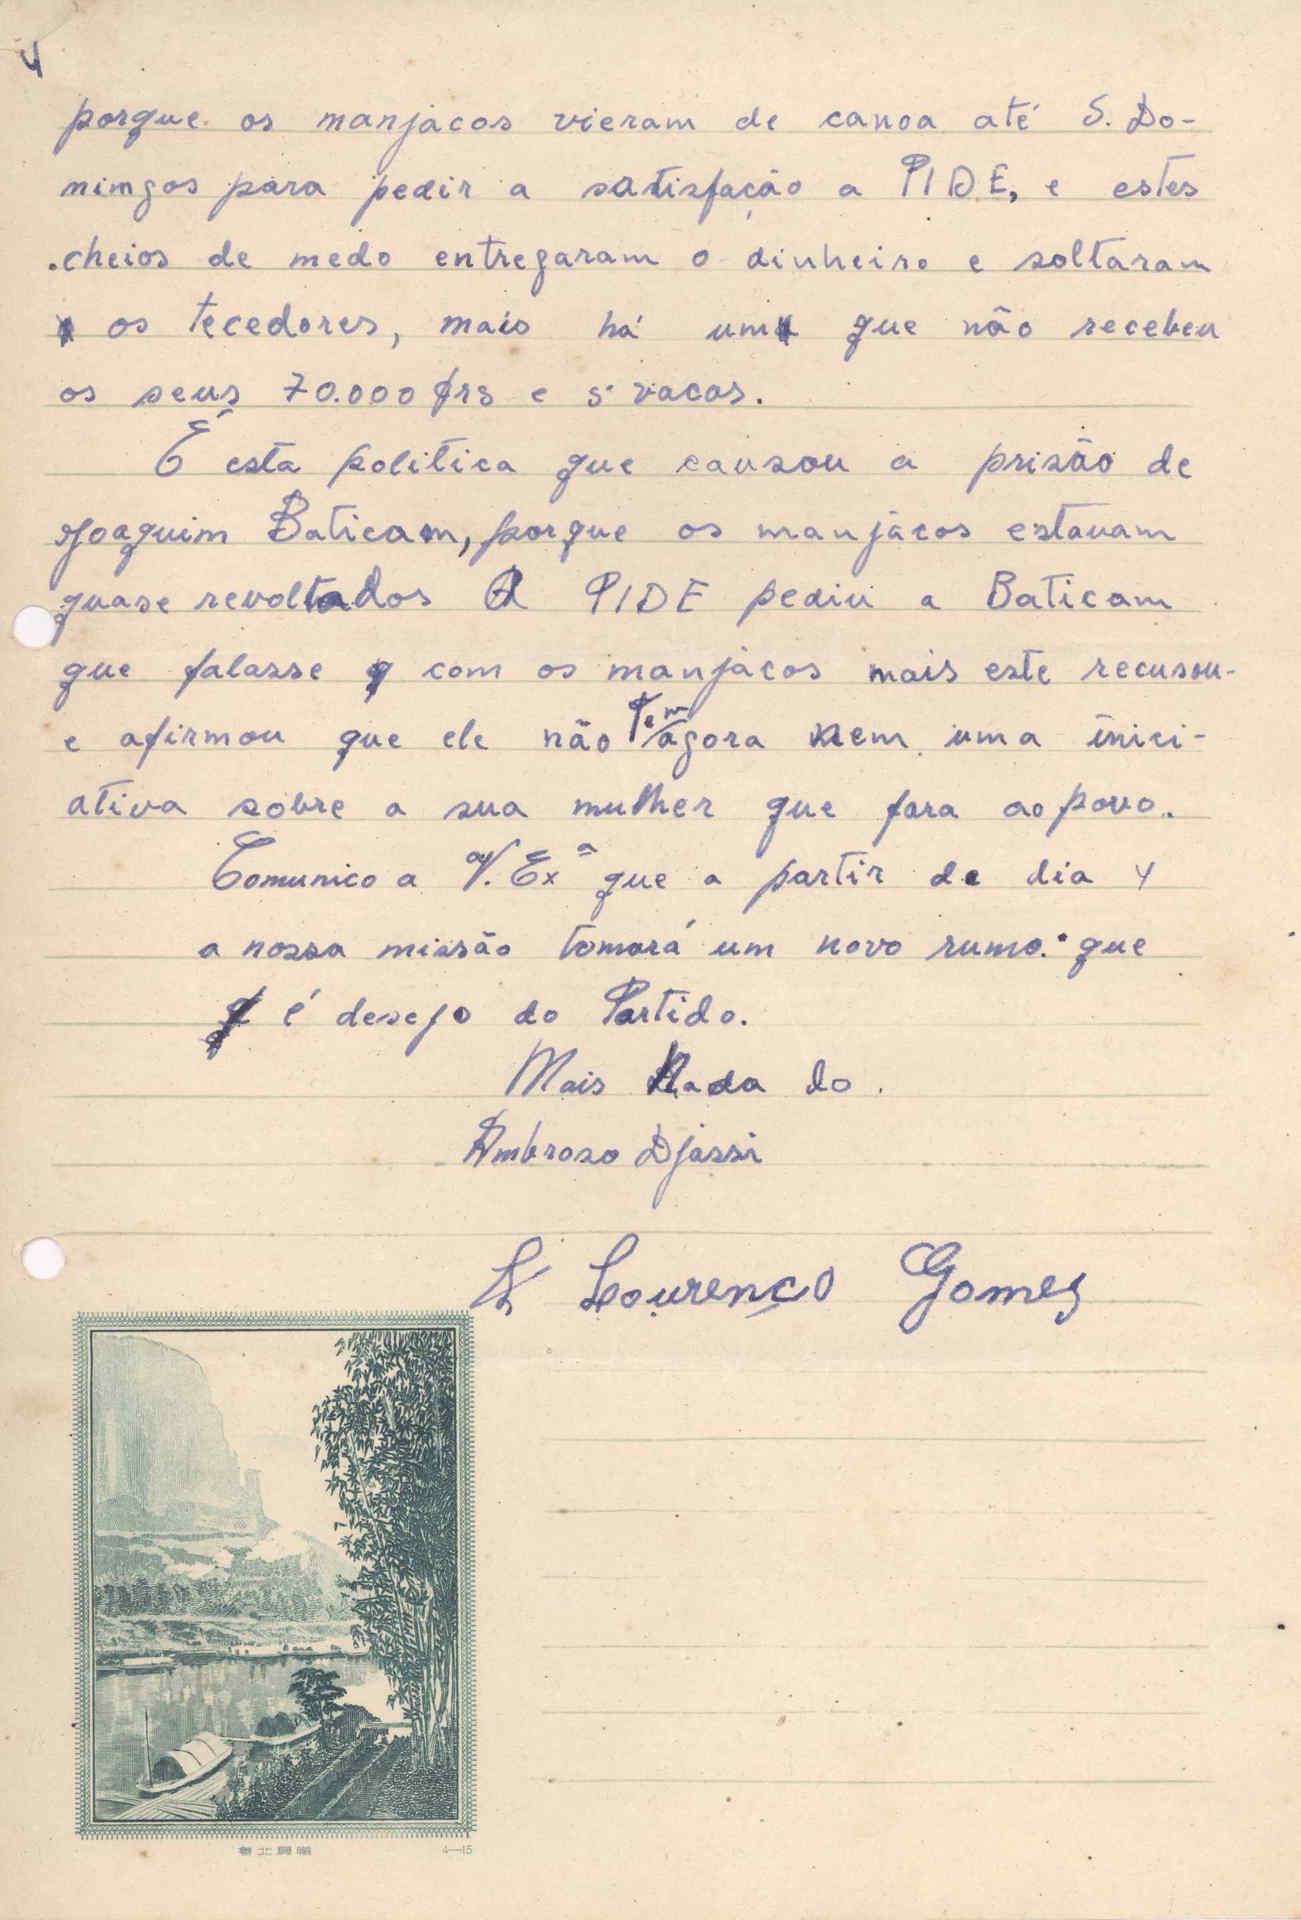 4
porque os manjacos vieram de canoa até S. Do-
mimgos para pedir a satisfação a PIDE, e estes
cheios de medo entregaram o dinheiro e soltaram
os tecedores, mais há um que não recebeu
os seus 70.000 frs e 5 vacas.
É esta politica que causou a prisão de
Joaquim Baticam, porque os manjacos estavam
quase revoltados A PIDE pediu a Baticam
que falasse com os manjacos mais este recusou-
e afirmou que ele não tem agora nem uma inici-
ativa sobre a sua mulher que fara ao povo.
Comunico a V. Exª que a partir de dia 4
a nossa missão tomará um novo rumo. que
é desejo do Partido.
Mais Nada do.
Ambroso Djassi
Lourenço Gomes
4—15